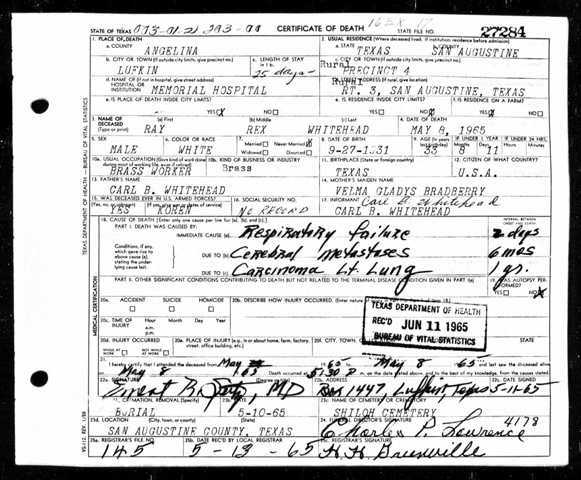 STATE OF TEXAS CERTIFICATE OF DEATH STATE FILE NO. 27284
1. PLACE OF DEATH 2. USUAL RESIDENCE (Where deceased lived. If institution: residence before admission)
a. COUNTY ANGELINA a. STATE TEXAS b. COUNTY SAN AUGUSTINE
b. CITY OR TOWN (If outside city limits, give precinct no.) c. LENGTH OF STAY c. CITY OR TOWN (If outside city limits, give precinct no.)
LUFKIN 25 days Rural PRECINCT 4
d. NAME OF (If not in hospital, give street address) HOSPITAL OR INSTITUTION MEMORIAL HOSPITAL Rural RT. 3, SAN AUGUSTINE, TEXAS
e. IS PLACE OF DEATH INSIDE CITY LIMITS? e. IS RESIDENCE INSIDE CITY LIMITS? f. IS RESIDENCE ON A FARM?
YES NO YES NO YES NO
3. NAME OF DECEASED (Type or print) (a) First (b) Middle (c) Last 4. DATE OF DEATH
RAY REX WHITEHEAD MAY 8, 1965
5. SEX 6. COLOR OR RACE 7. Married Never Married Widowed Divorced 8. DATE OF BIRTH 9. AGE
MALE WHITE 9-27-1931 33 11
10a. USUAL OCCUPATION 10b. KIND OF BUSINESS OR INDUSTRY 11. BIRTHPLACE 12. CITIZEN OF WHAT COUNTRY?
BRASS WORKER Brass TEXAS U.S.A.
13. FATHER'S NAME 14. MOTHER'S MAIDEN NAME
CARL B. WHITEHEAD VELMA GLADYS BRADBERRY
15. WAS DECEASED EVER IN U.S. ARMED FORCES? 16. SOCIAL SECURITY NO. 17. INFORMANT Carl B. Whitehead
YES KOREN No RECORD CARL B. WHITEHEAD
18. CAUSE OF DEATH [Enter only one cause per line for (a), (b), and (c).]
PART I. DEATH WAS CAUSED BY:
IMMEDIATE CAUSE (a) Respiratory failure 2 days
Conditions, if any, which gave rise to above cause (a), stating the underlying cause last.
DUE TO (b) Cerebral Metastases 6 mos
DUE TO (c) Carcinoma Lt. Lung 1 yr.
PART II. OTHER SIGNIFICANT CONDITIONS CONTRIBUTING TO DEATH BUT NOT RELATED TO THE TERMINAL DISEASE CONDITION GIVEN IN PART I(a) 19. WAS AUTOPSY PERFORMED?
YES NO
20a. ACCIDENT SUICIDE HOMICIDE 20b. DESCRIBE HOW INJURY OCCURRED.
TEXAS DEPARTMENT OF HEALTH
REC'D JUN 11 1965
BUREAU OF VITAL STATISTICS
20c. TIME OF INJURY Hour Month Day Year
a.m.
p.m.
20d. INJURY OCCURRED 20e. PLACE OF INJURY (e.g., in or about home, farm, factory, street, office building, etc.) 20f. CITY, TOWN,
WHILE AT WORK NOT WHILE AT WORK
21. I hereby certify that I attended the deceased from May 65 to May 8 65
May 8 Death occurred at
22a. SIGNATURE MD 22b. ADDRESS Box 1447, Lufkin, Texas 22c. DATE SIGNED 5-11-65
BURIAL 5-10-65 SHILOH CEMETERY
23d. LOCATION (City, town, or county) (State) 4178
SAN AUGUSTINE COUNTY, TEXAS Charles P. Lawrence
25a. REGISTRAR'S FILE NO. 25b. DATE REC'D BY LOCAL REGISTRAR
145 5-13-65